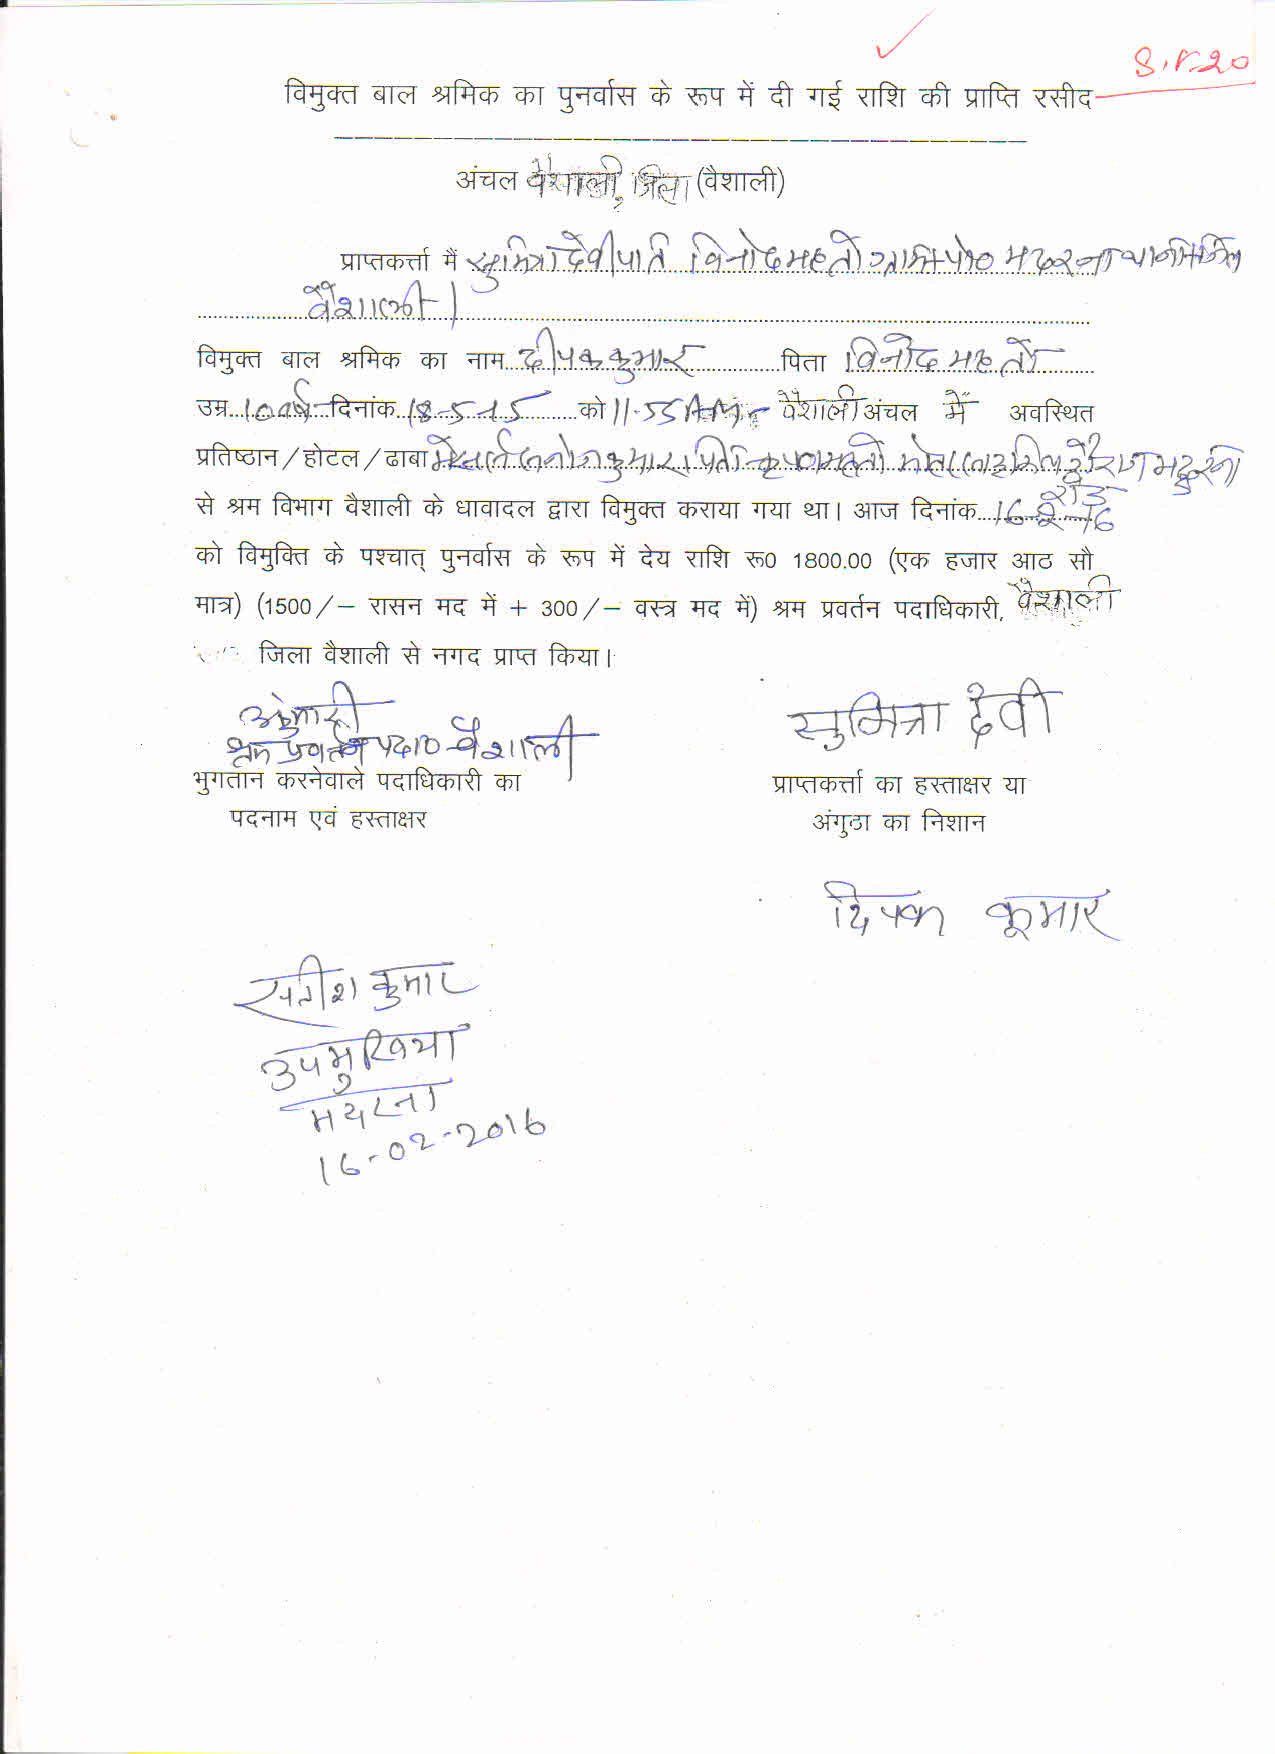 S.r.20
विमुक्त बाल श्रमिक का पुनर्वास के रूप में दी गई राशि की प्राप्ति रसीद
अंचल वैशाली, जिला (वैशाली)
प्राप्तकर्त्ता मैं सुमित्रा देवी पति विनोद महतो ग्राम+पो०
वैशाली।
विमुक्त बाल श्रमिक का नाम दीपक कुमार पिता विनोद महतो
उम्र 10 वर्ष दिनांक 18-5-15 को 11.55 AM वैशाली अंचल में अवस्थित
प्रतिष्ठान/होटल/ढाबा कुमार
रोड
से श्रम विभाग वैशाली के धावादल द्वारा विमुक्त कराया गया था। आज दिनांक 16-2-16
को विमुक्ति के पश्चात् पुनर्वास के रूप में देय राशि रू0 1800.00 (एक हजार आठ सौ
मात्र) (1500/– रासन मद में + 300/– वस्त्र मद में) श्रम प्रवर्तन पदाधिकारी, वैशाली
जिला वैशाली से नगद प्राप्त किया।
सुमित्रा देवी
श्रम प्रवर्तन पदा० वैशाली
भुगतान करनेवाले पदाधिकारी का
पदनाम एवं हस्ताक्षर
प्राप्तकर्त्ता का हस्ताक्षर या
अंगुठा का निशान
दिपक कूमार
सतीश कुमार
उपमुखिया
16-02-2016